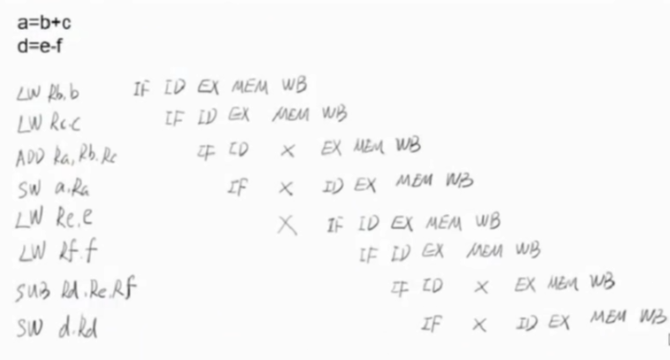 a=b+c
d=e-f
LW Rb.b IF ID EX MEM WB
LW Rc.c IF ID EX MEM WB
ADD Ra, Rb. Rc IF ID × EX MEM WB
SW a.Ra IF × ID EX MEM WB
LW Re.e × IF ID EX MEM WB
LW Rf.f IF ID EX MEM WB
SUB Rd.Re.Rf IF ID × EX MEM WB
SW d.Rd IF × ID EX MEM WB